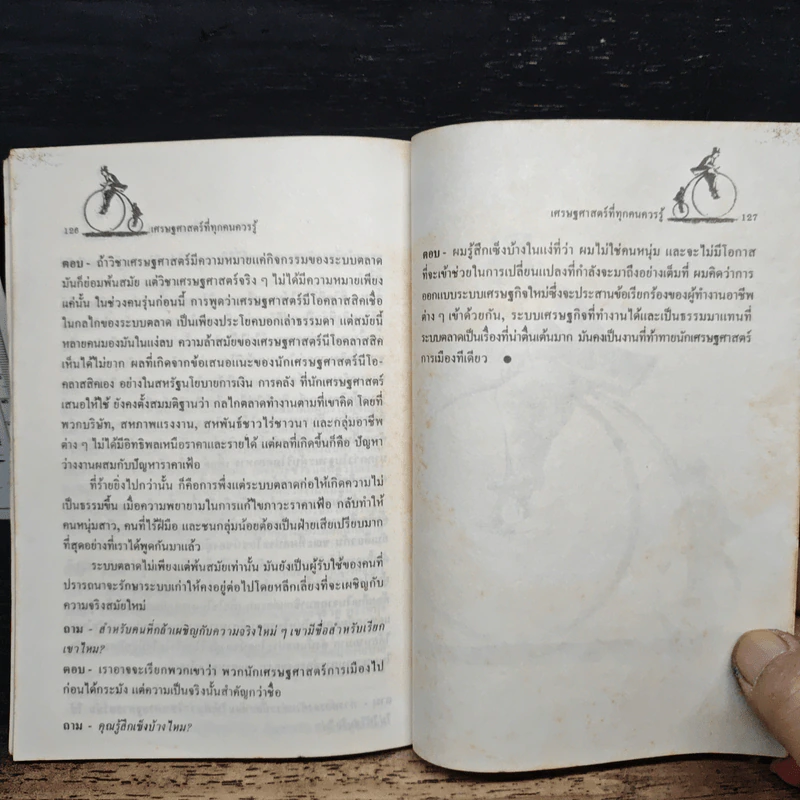 126 เศรษฐศาสตร์ที่ทุกคนควรรู้
ตอบ - ถ้าวิชาเศรษฐศาสตร์มีความหมายแค่กิจกรรมของระบบตลาด
มันก็ย่อมพ้นสมัย แต่วิชาเศรษฐศาสตร์จริง ๆ ไม่ได้มีความหมายเพียง
แค่นั้น ในช่วงคนรุ่นก่อนนี้ การพูดว่าเศรษฐศาสตร์นีโอคลาสสิคเชื่อ
ในกลไกของระบบตลาด เป็นเพียงประโยคบอกเล่าธรรมดา แต่สมัยนี้
หลายคนมองมันในแง่ลบ ความล้าสมัยของเศรษฐศาสตร์นีโอคลาสสิค
เห็นได้ไม่ยาก ผลที่เกิดจากข้อเสนอแนะของนักเศรษฐศาสตร์นีโอ-
คลาสสิคเอง อย่างในสหรัฐนโยบายการเงิน การคลัง ที่นักเศรษฐศาสตร์
เสนอให้ใช้ ยังคงตั้งสมมติฐานว่า กลไกตลาดทำงานตามที่เขาคิด โดยที่
พวกบริษัท, สหภาพแรงงาน, สหพันธ์ชาวไร่ชาวนา และกลุ่มอาชีพ
ต่าง ๆ ไม่ได้มีอิทธิพลเหนือราคาและรายได้ แต่ผลที่เกิดขึ้นก็คือ ปัญหา
ว่างงานผสมกับปัญหาราคาเฟ้อ
ที่ร้ายยิ่งไปกว่านั้น ก็คือการพึ่งแต่ระบบตลาดก่อให้เกิดความไม่
เป็นธรรมขึ้น เมื่อความพยายามในการแก้ไขภาวะราคาเฟ้อ กลับทำให้
คนหนุ่มสาว, คนที่ไร้ฝีมือ และชนกลุ่มน้อยต้องเป็นฝ่ายเสียเปรียบมาก
ที่สุดอย่างที่เราได้พูดกันมาแล้ว
ระบบตลาดไม่เพียงแต่พ้นสมัยเท่านั้น มันยังเป็นผู้รับใช้ของคนที่
ปรารถนาจะรักษาระบบเก่าให้คงอยู่ต่อไปโดยหลีกเลี่ยงที่จะเผชิญกับ
ความจริงสมัยใหม่
ถาม - สำหรับคนที่กล้าเผชิญกับความจริงใหม่ ๆ เขามีชื่อสำหรับเรียก
เขาไหม?
ตอบ - เราอาจจะเรียกพวกเขาว่า พวกนักเศรษฐศาสตร์การเมืองไป
ก่อนได้กระมัง แต่ความเป็นจริงนั้นสำคัญกว่าชื่อ
ถาม - คุณรู้สึกเซ็งบ้างไหม?
เศรษฐศาสตร์ที่ทุกคนควรรู้ 127
ตอบ - ผมรู้สึกเซ็งบ้างในแง่ที่ว่า ผมไม่ใช่คนหนุ่ม และจะไม่มีโอกาส
ที่จะเข้าช่วยในการเปลี่ยนแปลงที่กำลังจะมาถึงอย่างเต็มที่ ผมคิดว่าการ
ออกแบบระบบเศรษฐกิจใหม่ซึ่งจะประสานข้อเรียกร้องของผู้ทำงานอาชีพ
ต่าง ๆ เข้าด้วยกัน, ระบบเศรษฐกิจที่ทำงานได้และเป็นธรรมมาแทนที่
ระบบตลาดเป็นเรื่องที่น่าตื่นเต้นมาก มันคงเป็นงานที่ท้าทายนักเศรษฐศาสตร์
การเมืองทีเดียว ●